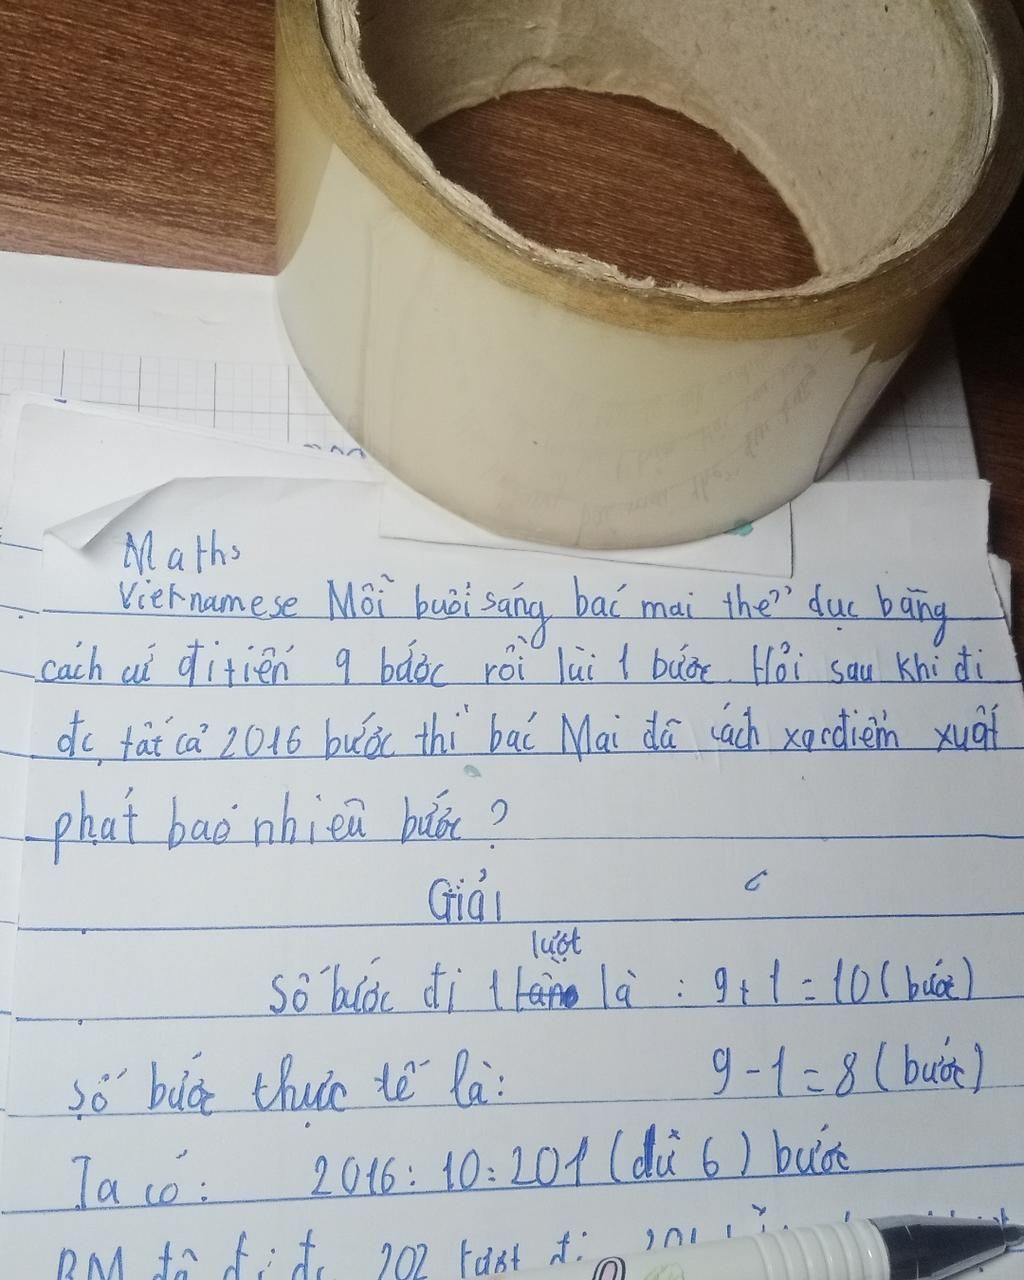 Maths
Vietnamese Mỗi buổi sáng bác mai thể dục bằng
cách cứ đi tiến 9 bước rồi lùi 1 bước. Hỏi sau khi đi
đc tất cả 2016 bước thì bác Mai đã cách xa điểm xuất
phát bao nhiêu bước?
Giải
lượt
Số bước đi 1 là : 9+1=10 (bước)
Số bước thực tế là: 9-1=8 (bước)
Ta có: 2016:10=201 (dư 6) bước
BM đã đi đc 202 lượt đi